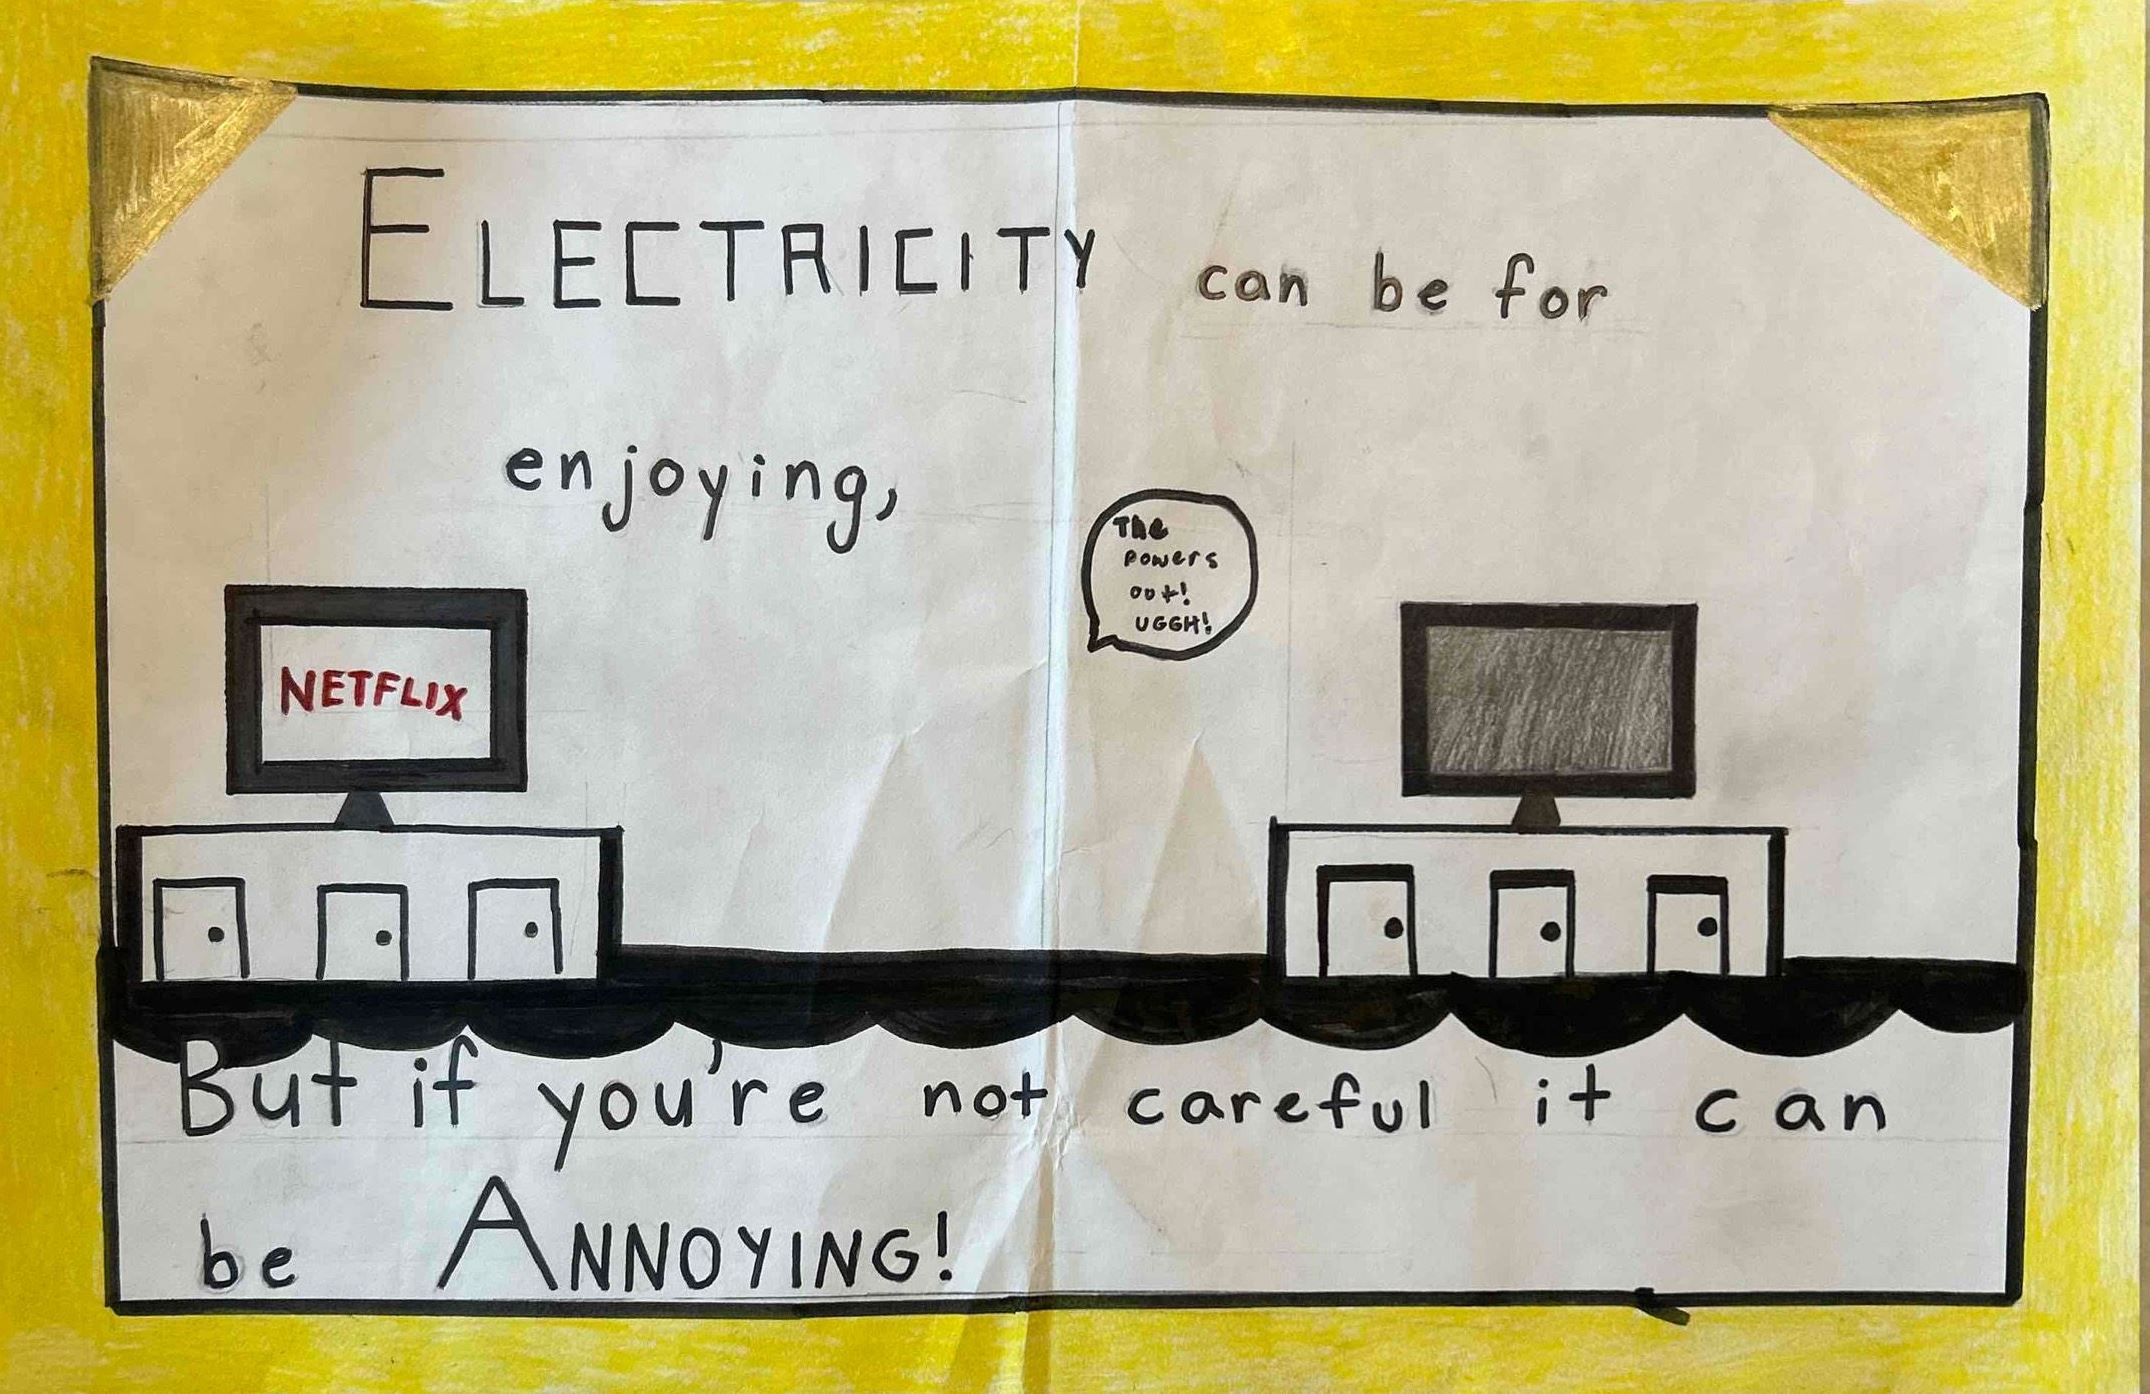 ELECTRICITY can be for
enjoying,
The
powers
out!
UGGH!
NETFLIX
But if you're not careful it can
be ANNOYING!